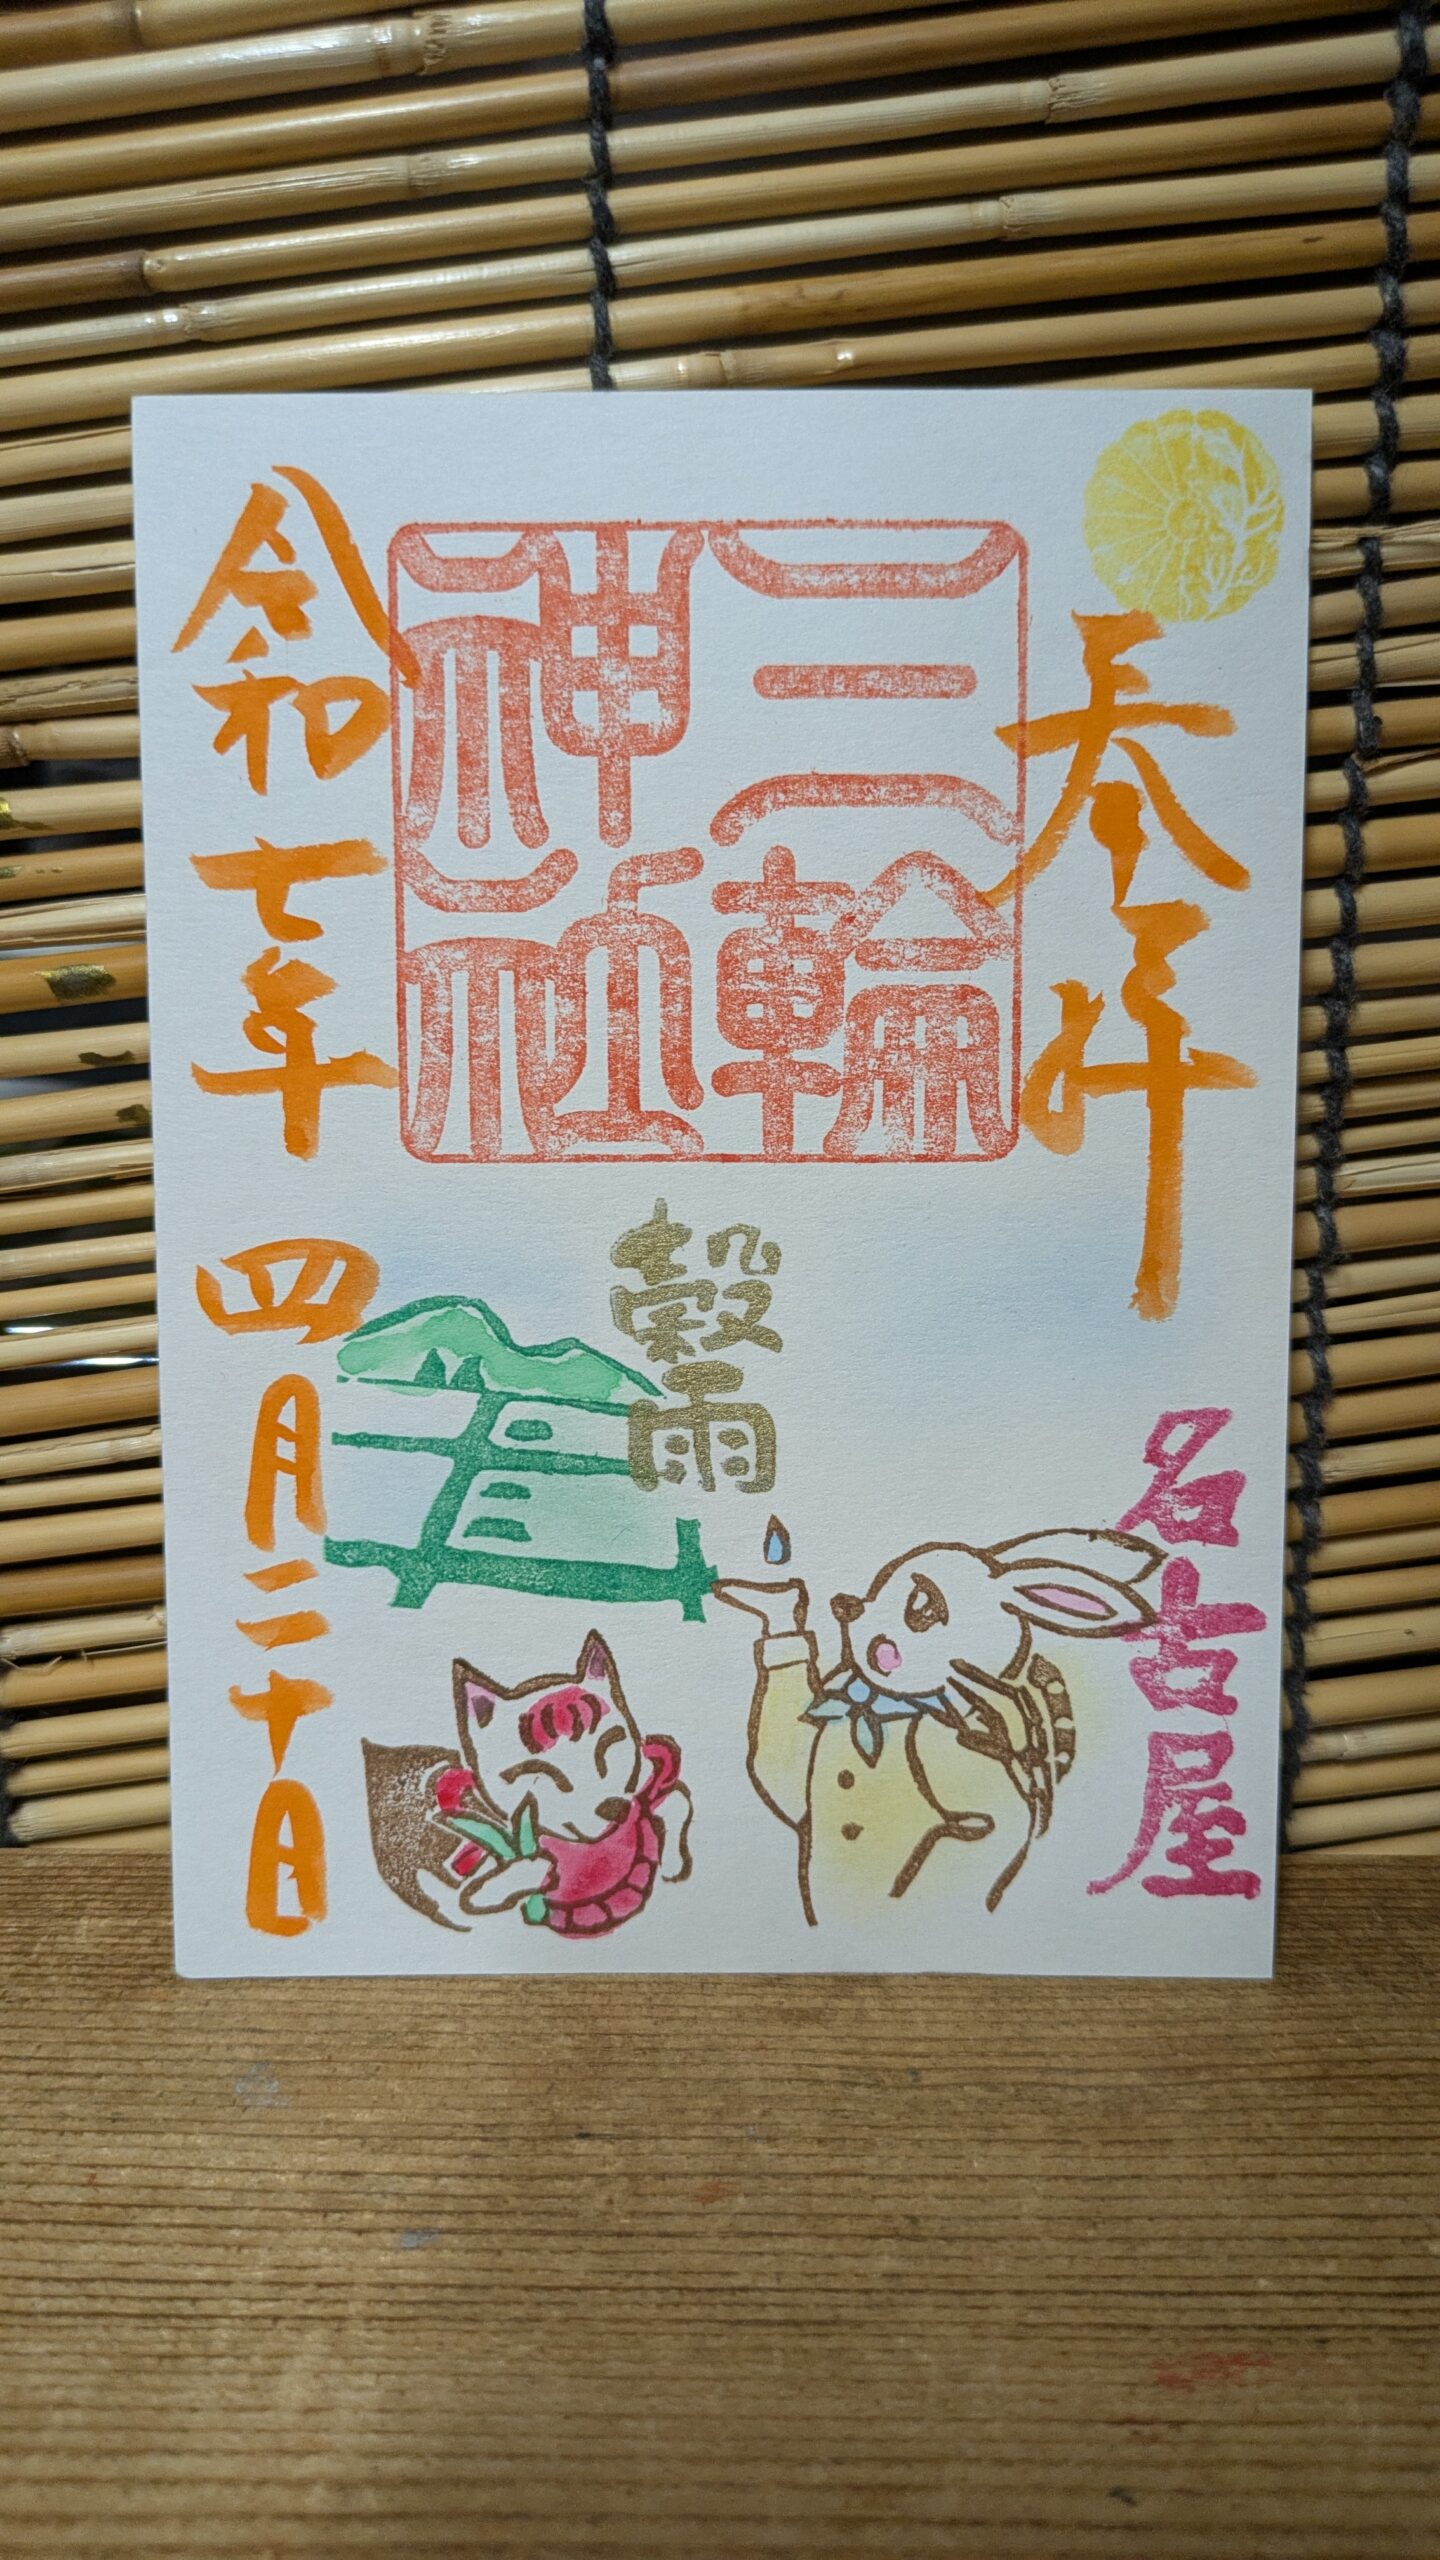 奉拝
名古屋
三輪
神社
穀雨
令和七年四月二十日